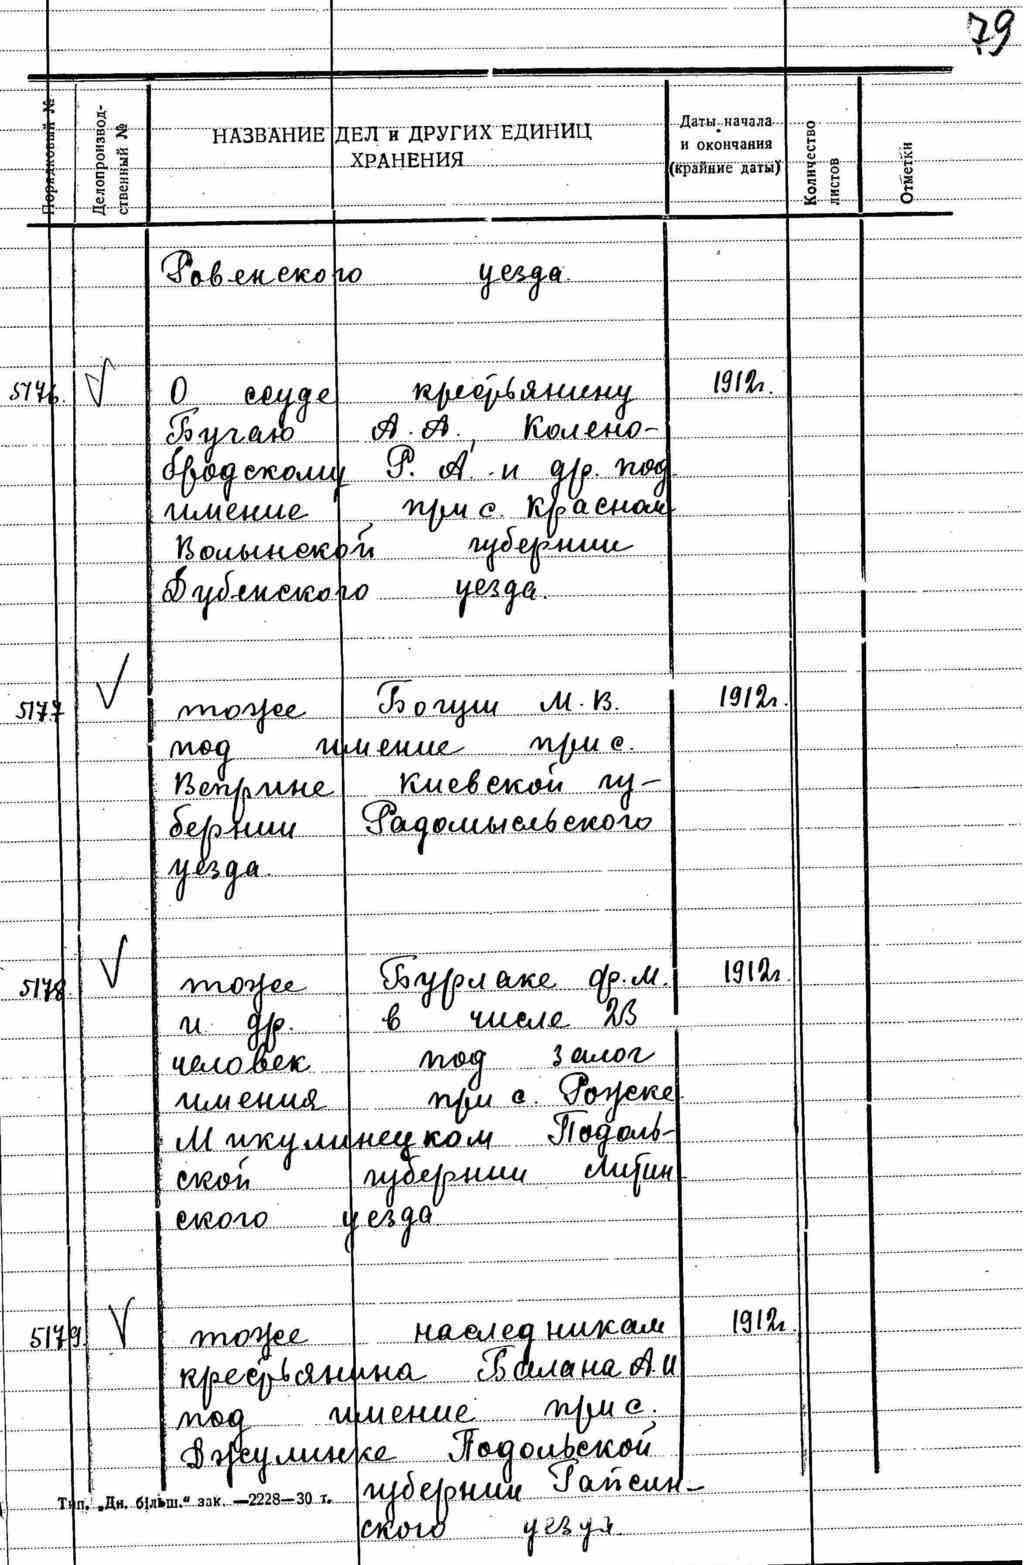 79
Порядковый №
Делопроизвод-
ственный №
НАЗВАНИЕ ДЕЛ и ДРУГИХ ЕДИНИЦ
ХРАНЕНИЯ
Даты начала
и окончания
(крайние даты)
Количество
листов
Отметки
Ровенского уезда.
5176. О ссуде крестьянину 1912г.
Бугаю А. А., Колено-
бродскому Р. А. и др. под
имение при с. Красном
Волынской губернии
Дубенского уезда.
5177 тоже Богуш М. В. 1912г.
под имение при с.
Веприне Киевской гу-
бернии Радомысльского
уезда.
5178. тоже Бурлаке Ф. М. 1912г.
и др. в числе 23
человек под залог
имения при с. Рожске
Микулинецком Подоль-
ской губернии Литин
ского уезда
5179. тоже наследникам 1912г.
крестьянина Балана А. И
под имение при с.
Джулинке Подольской
губернии Гайсин-
ского уезда.
Тип. „Дн. більш." зак. —2228—30 т.